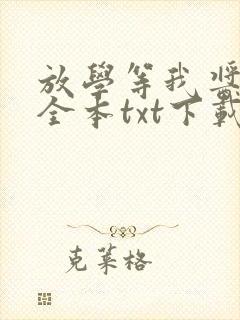 放學等我將
全本txt下載
克萊格